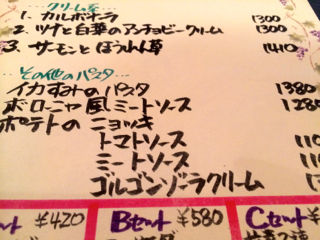 クリーム系
1. カルボナーラ 1300
2. ツナと白菜のアンチョビークリーム 1300
3. サーモンとほうれん草 1410
その他のパスタ
イカすみのパスタ 1380
ボローニャ風ミートソース 1280
ポテトのニョッキ
トマトソース 110
ミートソース 110
ゴルゴンゾーラクリーム 13
セット ¥420 Bセット ¥580 Cセット ¥